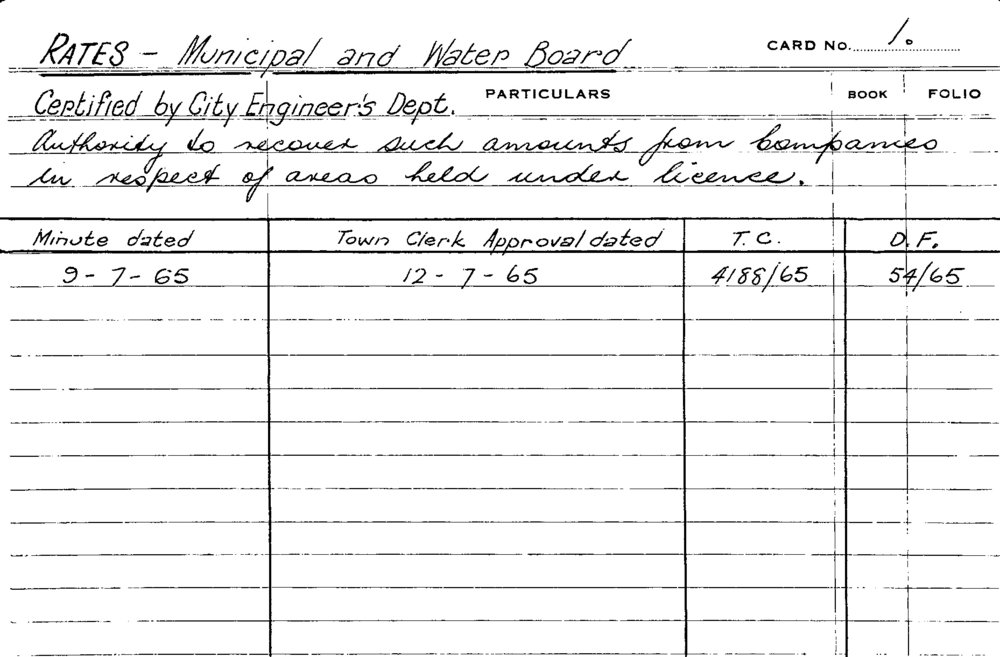 RATES - Municipal and Water Board CARD No. 1.
Certified by City Engineer's Dept. PARTICULARS BOOK FOLIO
Authority to recover such amounts from Companies
in respect of areas held under licence.
Minute dated Town Clerk Approval dated T.C. D.F.
9-7-65 12-7-65 4188/65 54/65